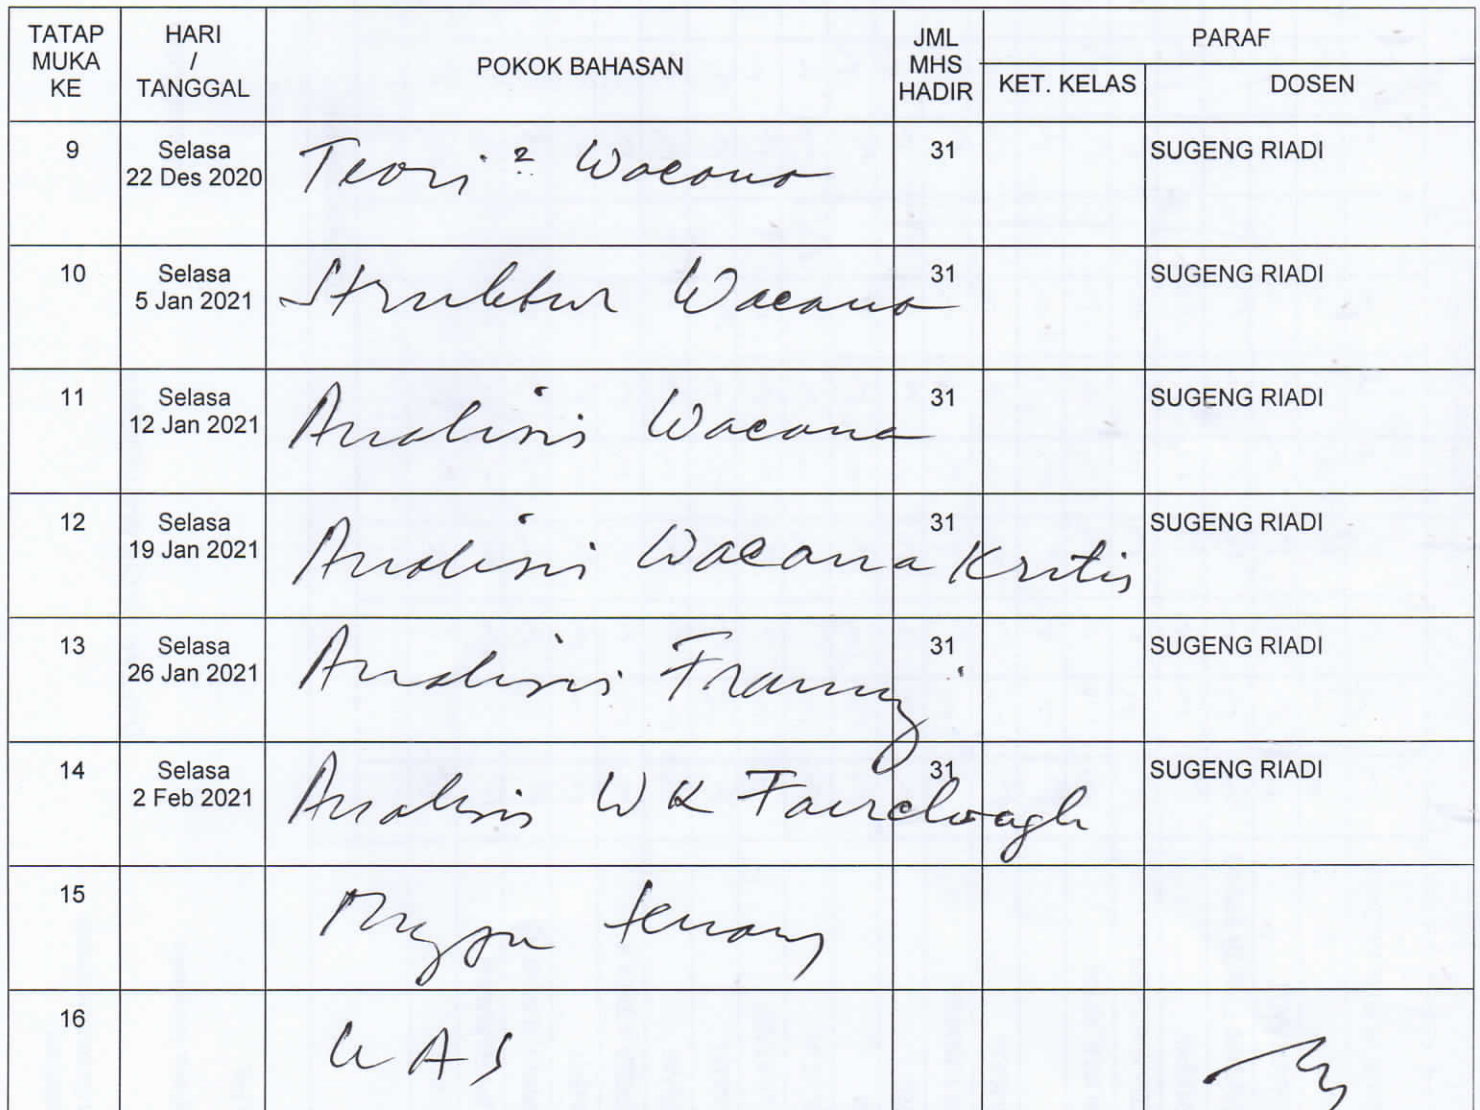 TATAP MUKA KE
HARI / TANGGAL
POKOK BAHASAN
JML MHS HADIR
PARAF
KET. KELAS
DOSEN
9
Selasa
22 Des 2020
Teori² Wacana
31
SUGENG RIADI
10
Selasa
5 Jan 2021
Struktur Wacana
31
SUGENG RIADI
11
Selasa
12 Jan 2021
Analisis Wacana
31
SUGENG RIADI
12
Selasa
19 Jan 2021
Analisis Wacana Kritis
31
SUGENG RIADI
13
Selasa
26 Jan 2021
Analisis Framing
31
SUGENG RIADI
14
Selasa
2 Feb 2021
Analisis WK Fairclough
31
SUGENG RIADI
15
Minggu tenang
16
UAS